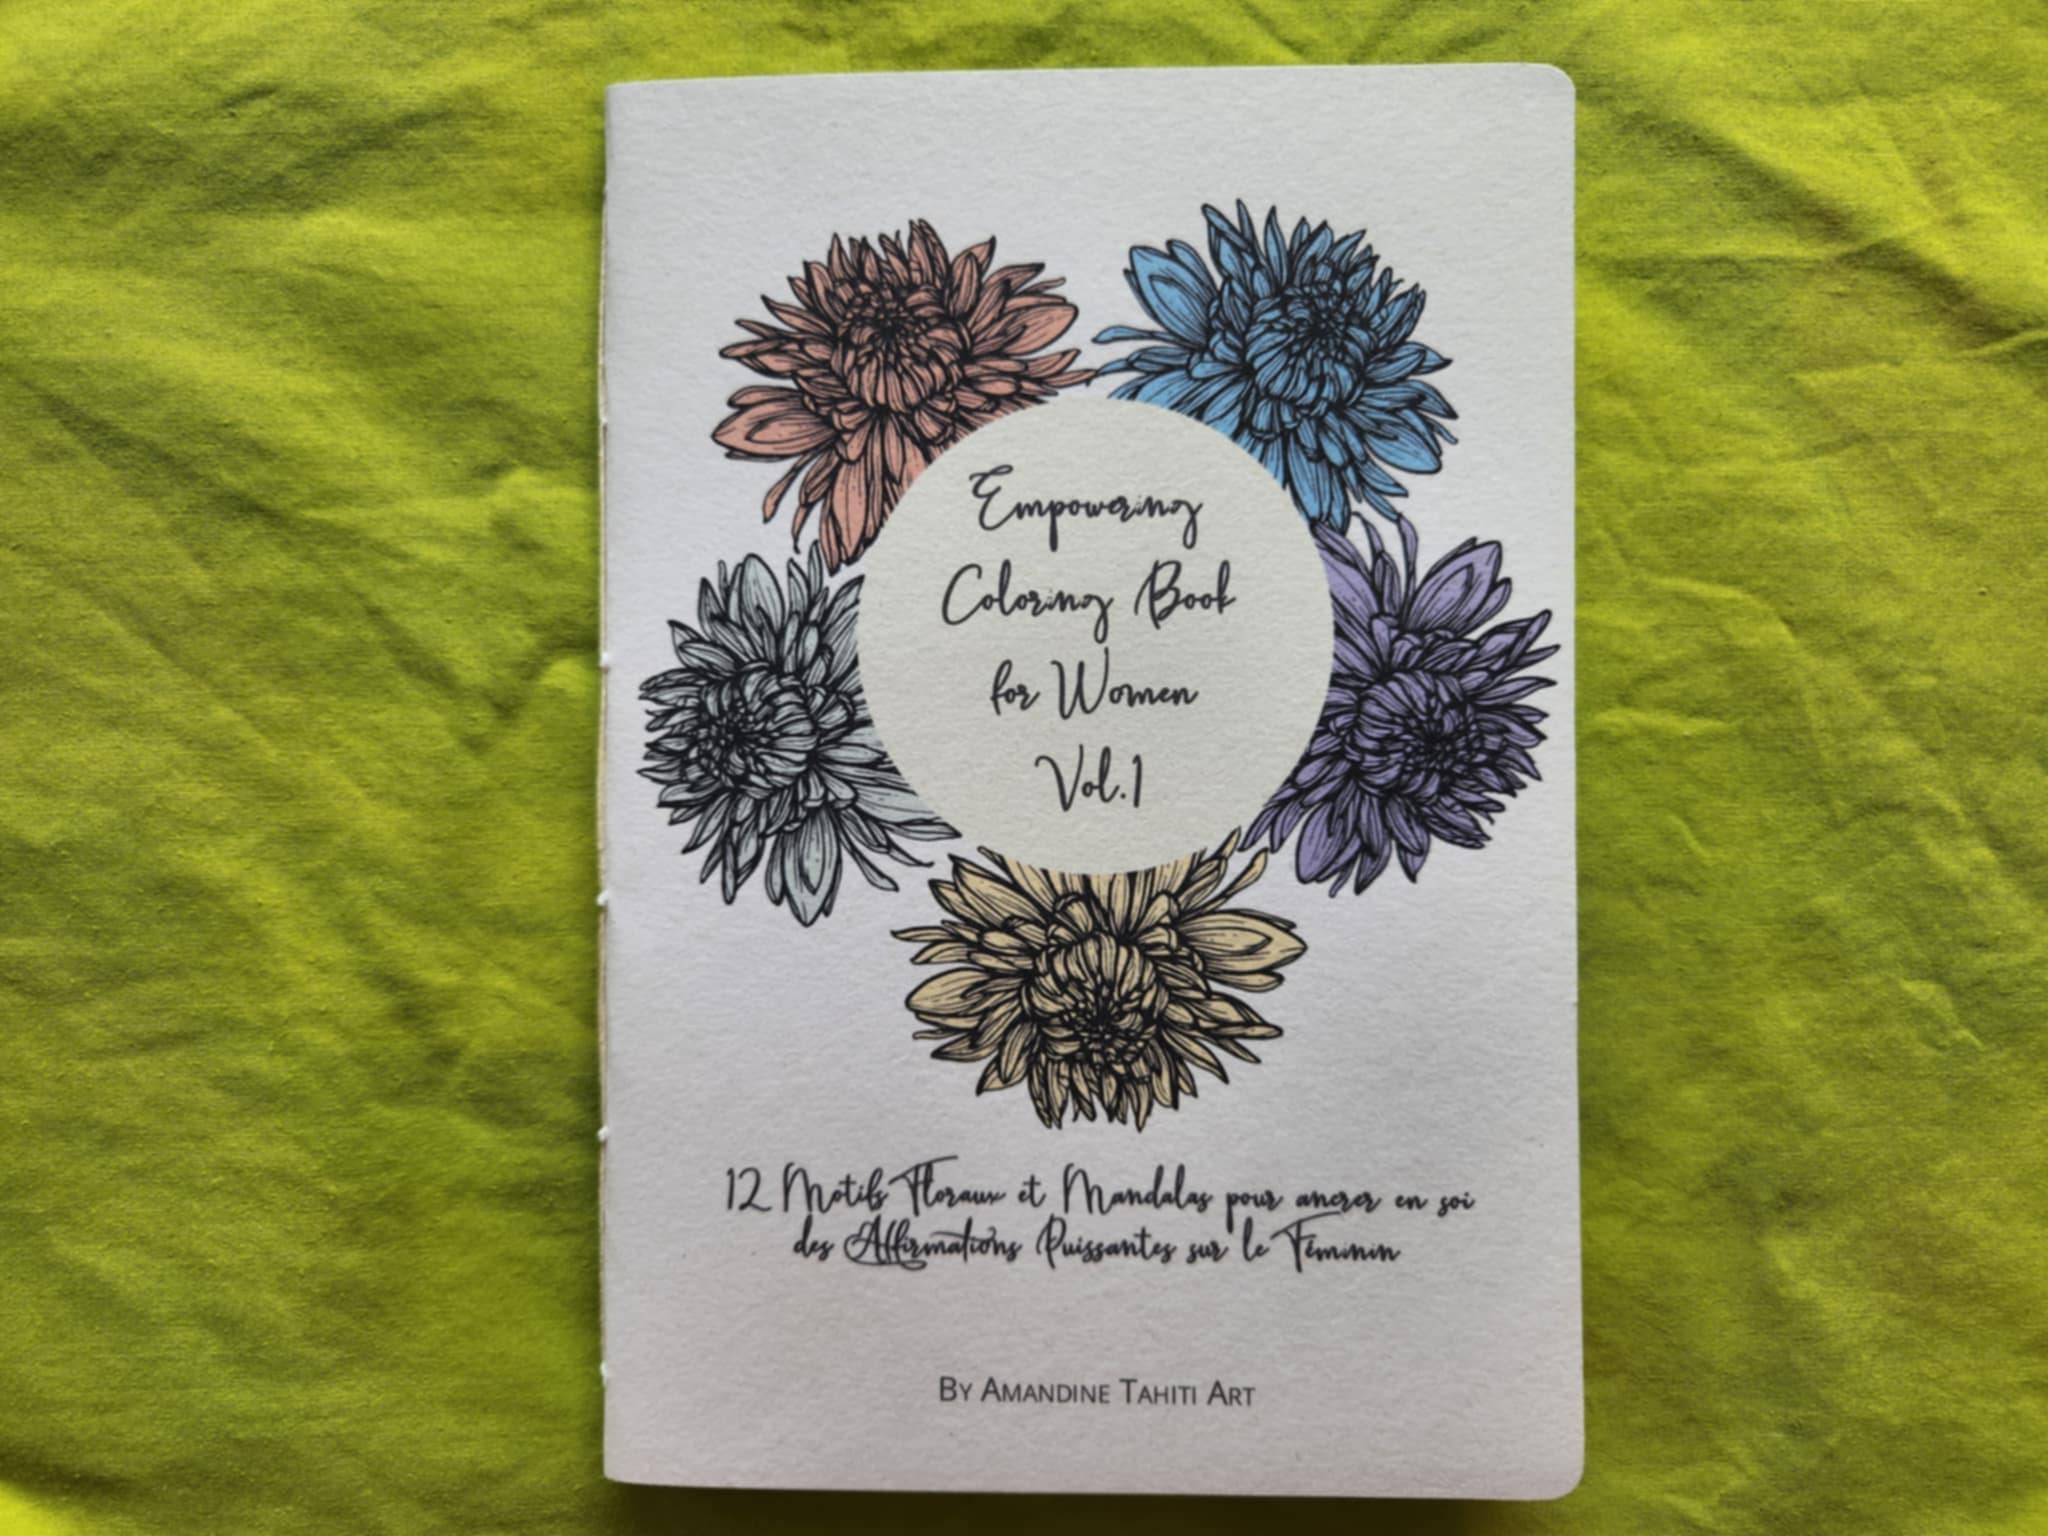 Empowering
Coloring Book
for Women
Vol.1
12 Motifs Floraux et Mandalas pour ancrer en soi
des Affirmations Puissantes sur le Féminin
By Amandine Tahiti Art